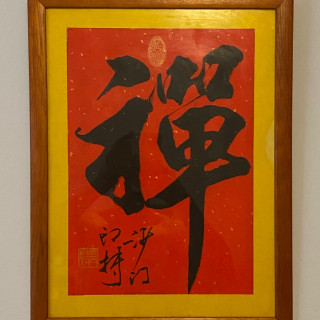 禪
沙门
印持